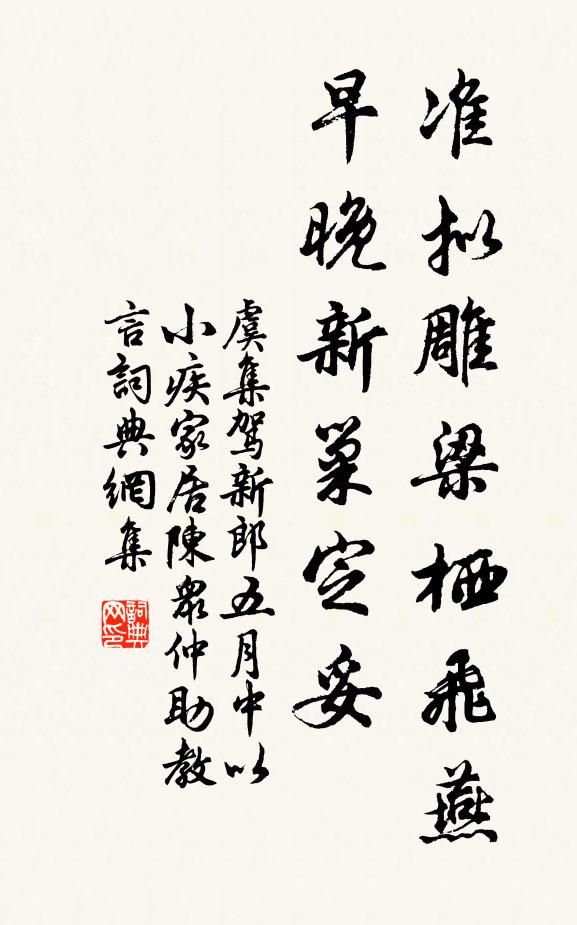 准拟雕梁栖飛燕
早晚新巢定妥
虞集駕新郎五月中以
小疾家居陳眾仲助教
言詞典網集
詞典网印